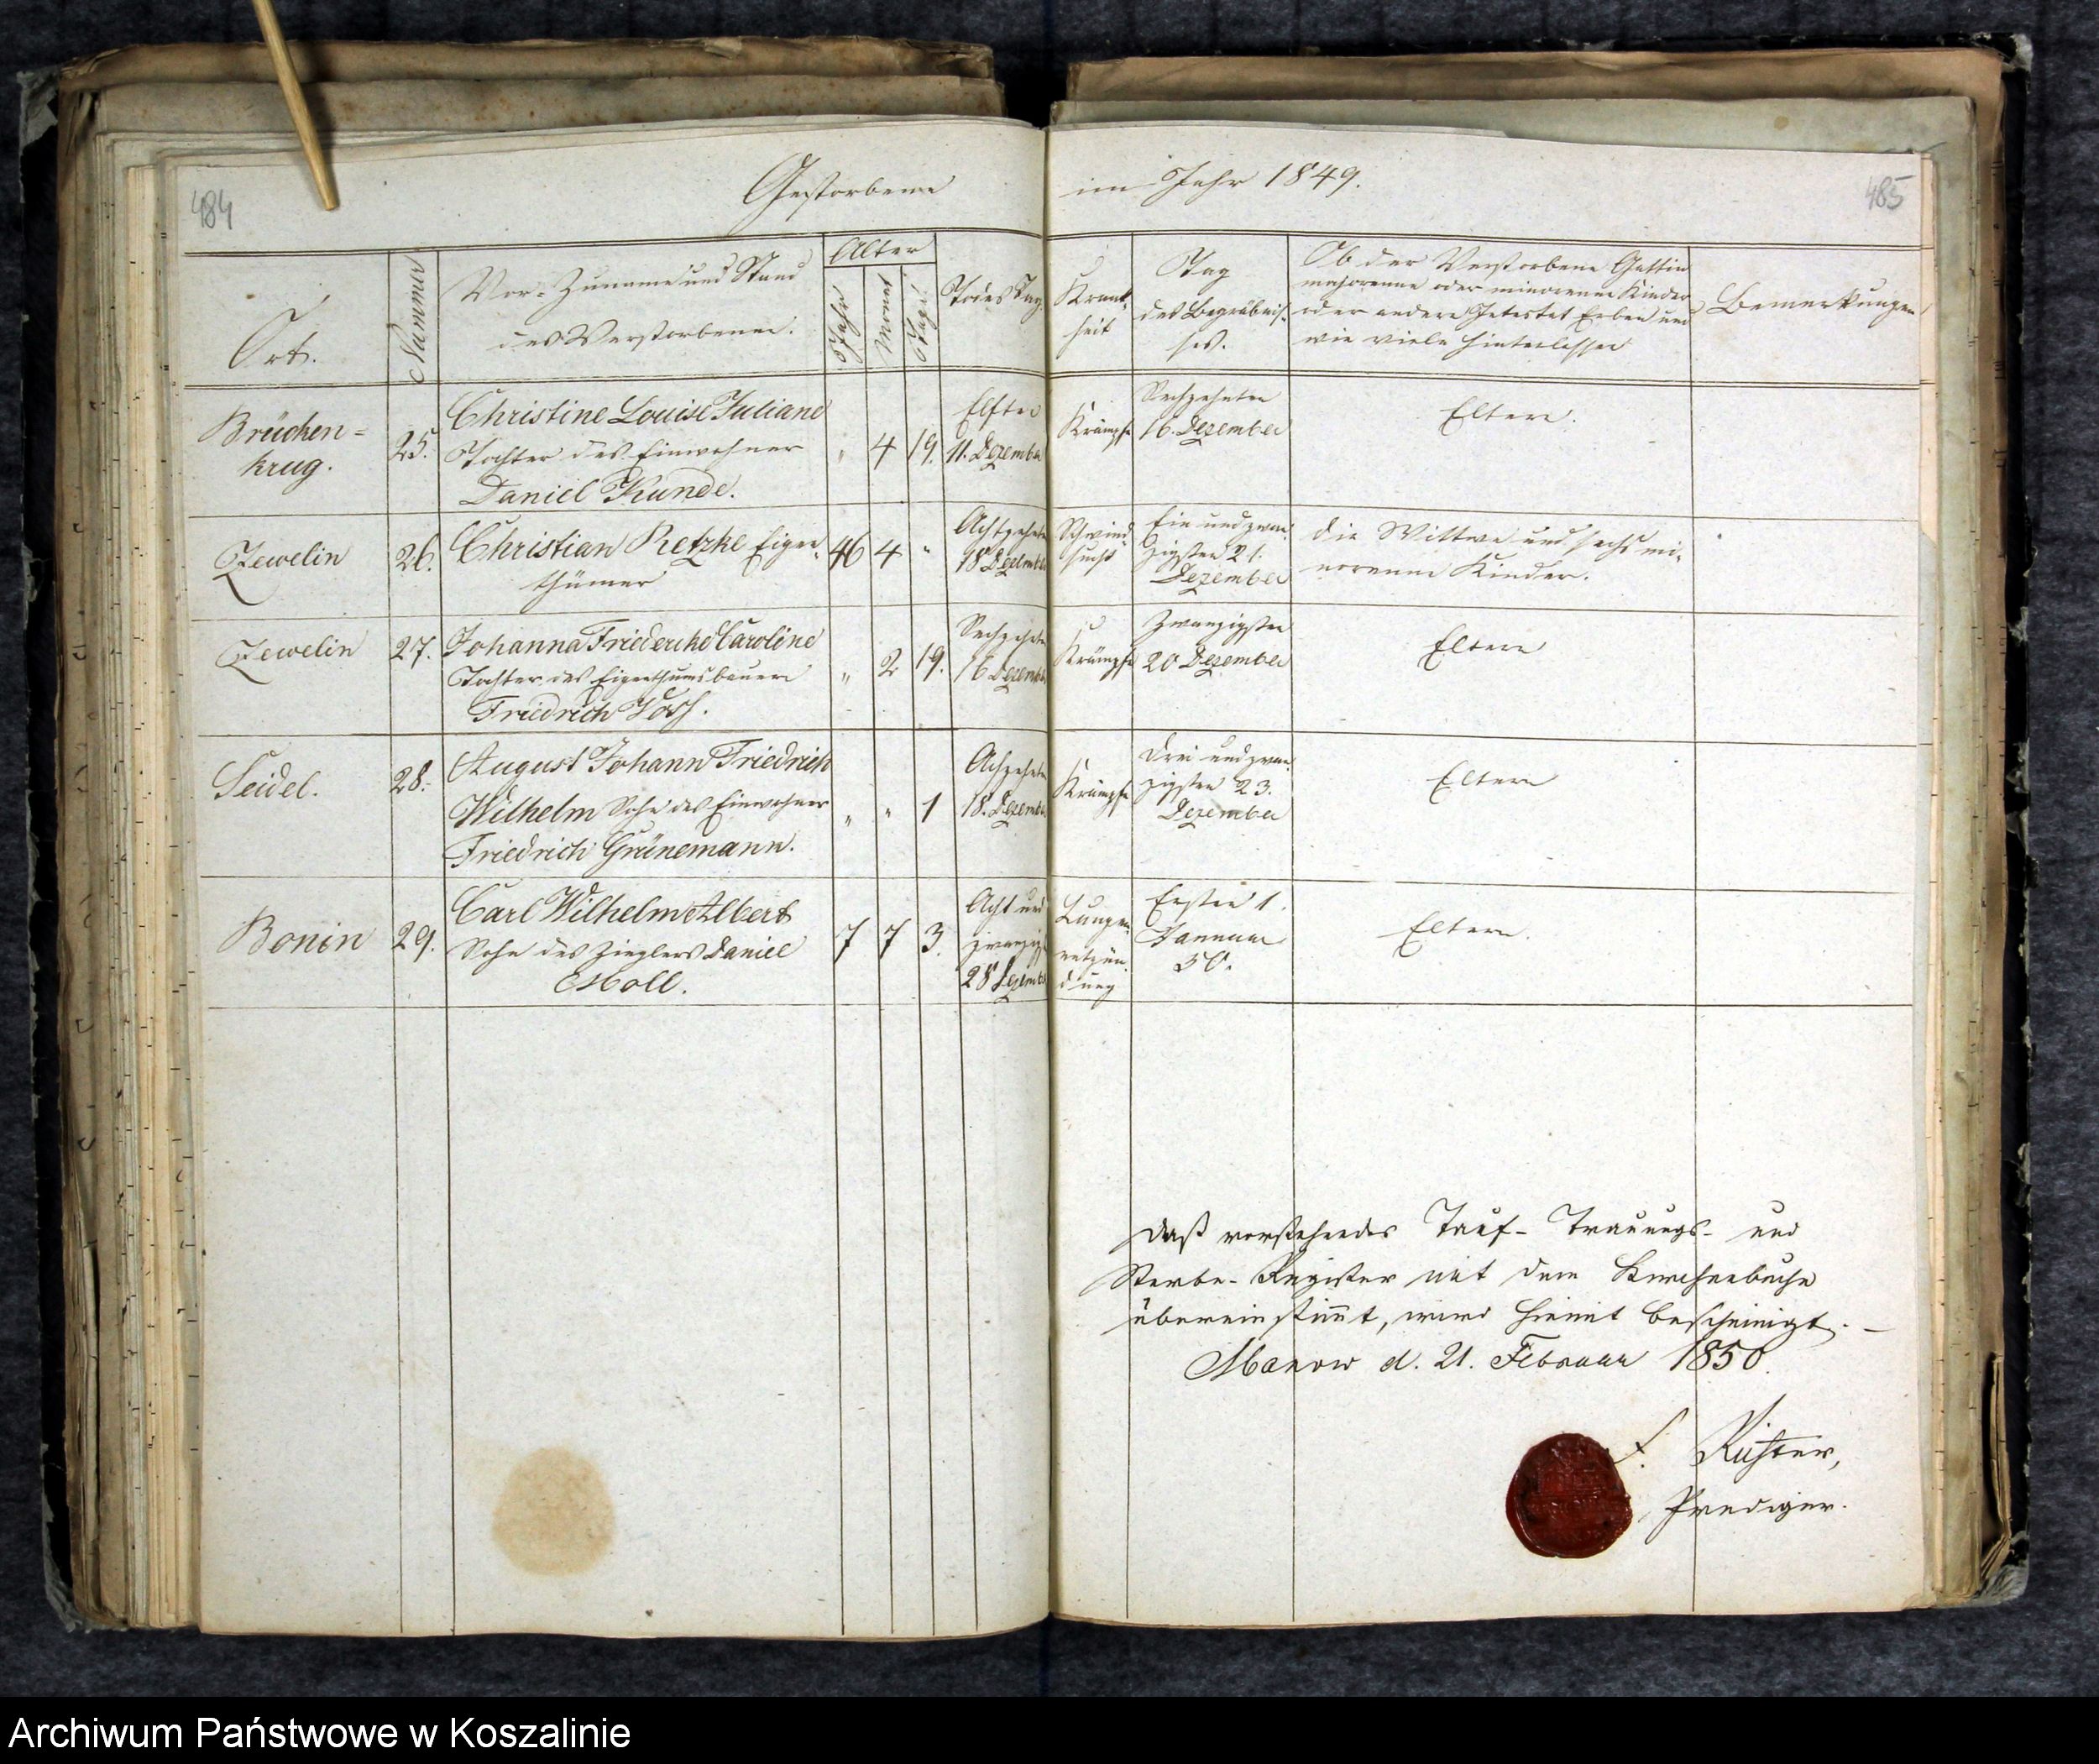 484
Gestorbene
im Jahr 1849.
485
Ort.
Nummer
Vor- Zuname und Stand
des Verstorbenen.
Alter
Jahr
Monat
Tage
Todes Tag.
Krank-
heit
Tag
des Begräbnis-
ses.
Ob der Verstorbene Gattin
majorenne oder minorenne Kinder
oder andere Intestat Erben und
wie viele hinterlassen
Bemerkungen
Brücken=
krug.
25.
Christine Louise Juliane
Tochter des Einwohner
Daniel Kunde.
" 4 19.
Elfte
11. Dezember
Krämpfe
Sechzehnten
16. Dezember
Eltern.
Zewelin
26.
Christian Retzke Eigen-
thümer
46 4 "
Achtzehnte
18 Dezember
Schwind
sucht
Ein und zwan-
zigsten 21.
Dezember
die Wittwe und sechs mi-
norenne Kinder.
Zewelin
27.
Johanna Friedericke Caroline
Tochter des Eigenthumsbauern
Friedrich Voss.
" 2 19.
Sechzehnte
16 Dezember
Krämpfe
Zwanzigsten
20 Dezember
Eltern
Seidel.
28.
August Johann Friedrich
Wilhelm Sohn des Einwohner
Friedrich Grünemann.
" " 1
Achzehnte
18. Dezember
Krämpfe
Drei und zwan-
zigsten 23.
Dezember
Eltern
Bonin
29.
Carl Wilhelm Albert
Sohn des Zieglers Daniel
Moll.
7 7 3.
Acht und
zwanzig
28 Dezember
Lungen-
entzün-
dung
Ersten 1.
Januar
50.
Eltern.
Daß vorstehendes Tauf- Trauungs- und
Sterbe-Register mit dem Kirchenbuche
übereinstimmt, wird hiemit bescheinigt. —
Manow d. 21. Februar 1850.
Prediger.
Archiwum Państwowe w Koszalinie